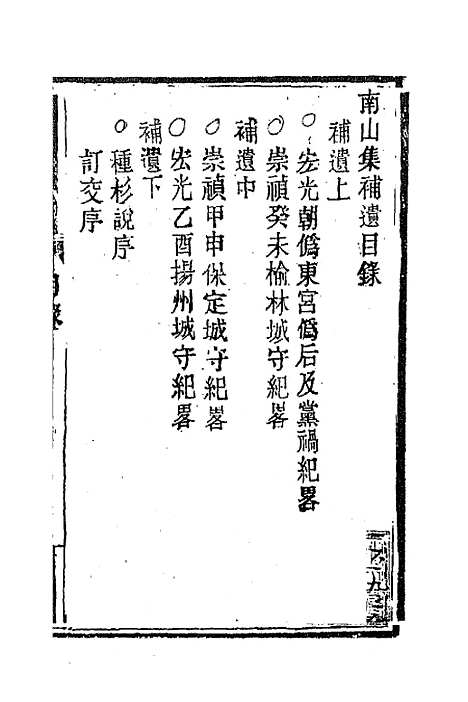 南山集補遺目錄
補遺上
○宏光朝僞東宮僞后及黨禍紀畧
○崇禎癸未榆林城守紀畧
補遺中
○崇禎甲申保定城守紀畧
○宏光乙酉揚州城守紀畧
補遺下
○種杉說序
訂交序
目錄